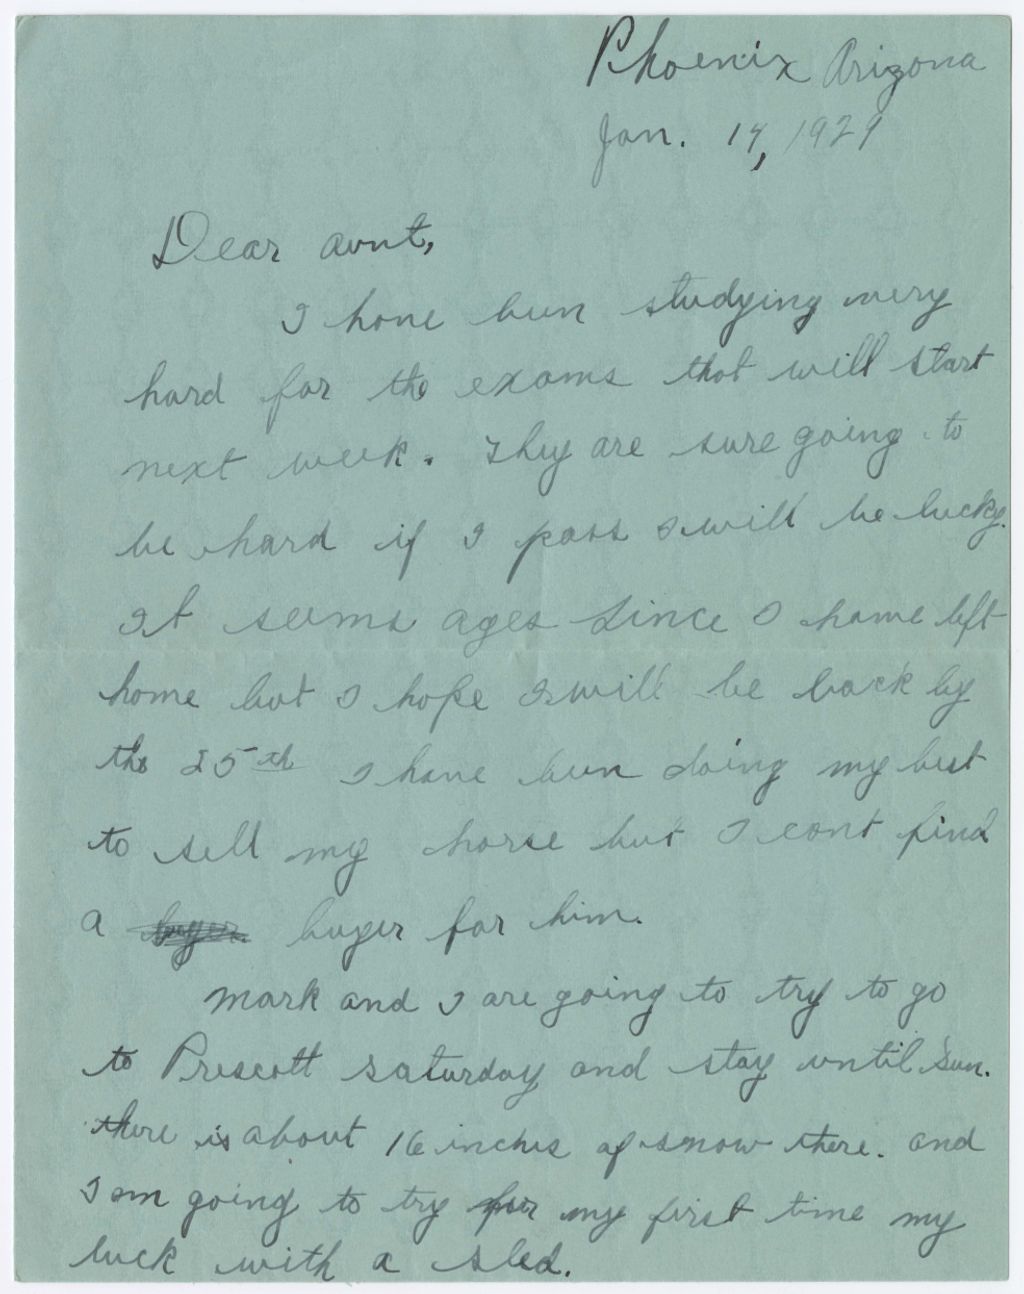 Phoenix Arizona
Jan. 14, 1929
Dear aunt,
I have been studying very
hard for the exams that will start
next week. They are sure going to
be hard if I pass I will be lucky.
It seems ages since I have left
home but I hope I will be back by
the 25th I have been doing my best
to sell my horse but I cant find
a buyer for him.
Mark and I are going to try to go
to Prescott saturday and stay until Sun.
there is about 16 inches of snow there. and
I am going to try for my first time my
luck with a sled.